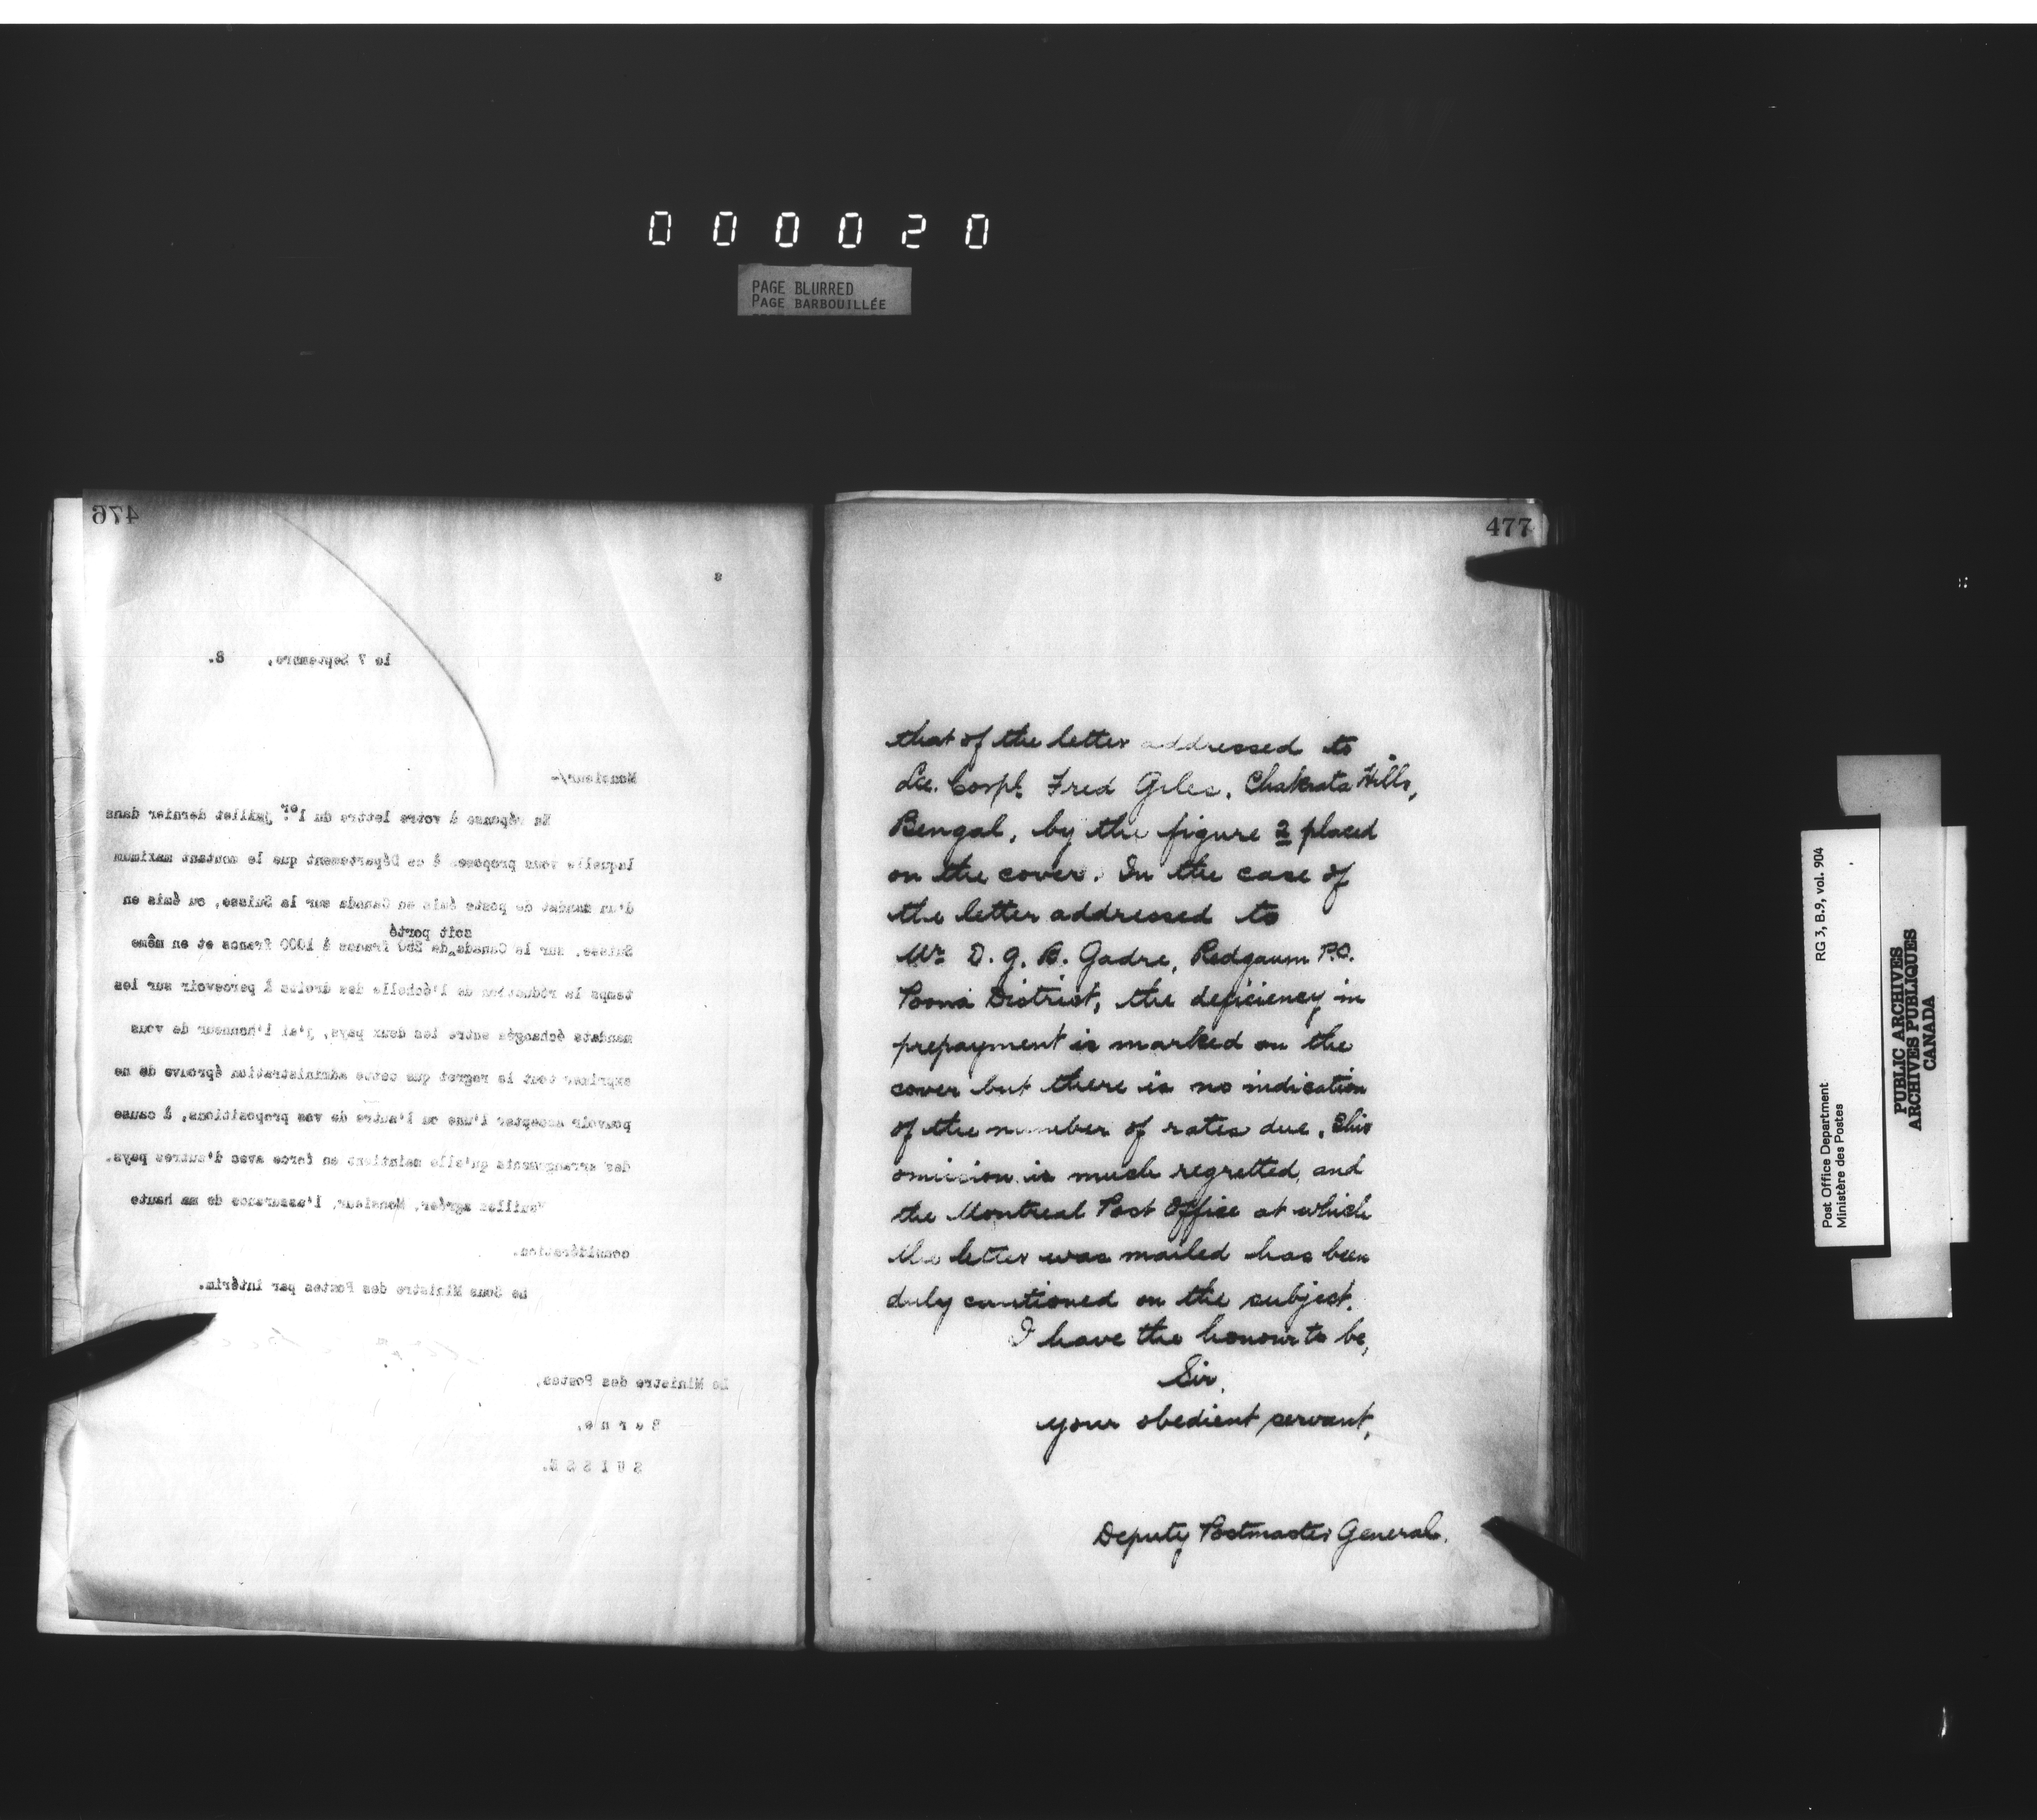 000020
PAGE BLURRED
PAGE BARBOUILLÉE
476
8
le 7 Septembre, 8.
Monsieur/-
En réponse à votre lettre du 1er juillet dernier dans
laquelle vous proposez à ce Département que le montant maximum
d'un mandat de poste émis en Canada sur la Suisse, ou émis en
soit porté
Suisse, sur le Canada de 250 francs à 1000 francs et en même
temps la réduction de l'échelle des droits à percevoir sur les
mandats échangés entre les deux pays, j'ai l'honneur de vous
exprimer tout le regret que cette administration éprouve de ne
pouvoir accepter l'une ou l'autre de vos propositions, à cause
des arrangements qu'elle maintient en force avec d'autres pays.
Veuillez agréer, Monsieur, l'assurance de ma haute
considération.
Le Sous Ministre des Postes par intérim.
Le Ministre des Postes,
Berne,
SUISSE.
477
that of the letter addressed to
Lce. Corpl. Fred Giles, Chakrata Hills,
Bengal, by the figure 2 placed
on the cover. In the case of
the letter addressed to
Mr. D. G. B. Gadre, Redgaum P.O.
Poona District, the deficiency in
prepayment is marked on the
cover but there is no indication
of the number of rates due. This
omission is much regretted, and
the Montreal Post Office at which
the letter was mailed has been
duly cautioned on the subject.
I have the honour to be,
Sir,
your obedient servant,
Deputy Postmaster General.
Post Office Department
Ministère des Postes
RG 3, B.9, vol. 904
PUBLIC ARCHIVES
ARCHIVES PUBLIQUES
CANADA